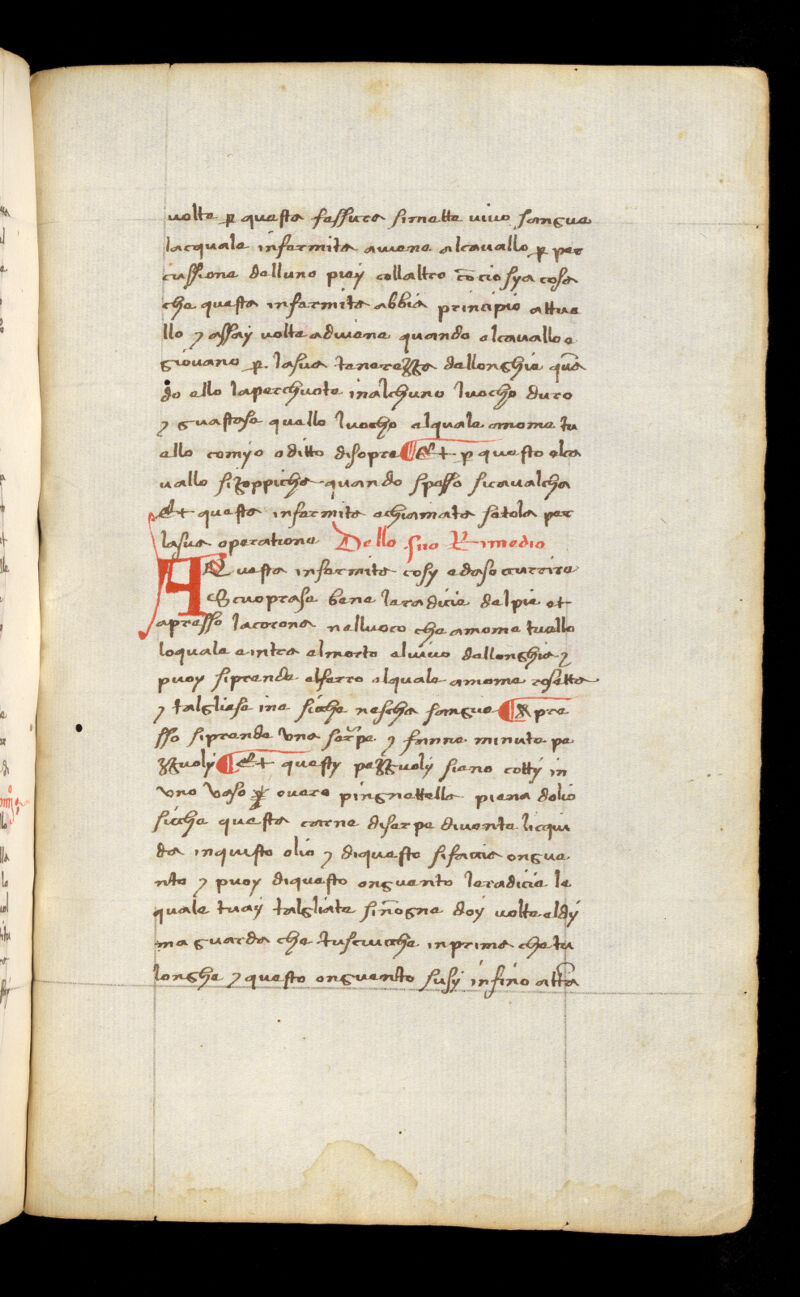 volte ꝑ questa fessura simette vivo sangue
lacquale infermita avvene alcavallo ꝑ per
cussione delluno piey collaltro cō cio sya cosa
che questa infermita abbia principio attue
llo ⁊ assay volte adviene quando elcavallo e
giovano ꝑ lasua tenerezza dellonghie quā
do ello laperchuote inalchuno luocho duro
⁊ guastase quello luocho elquale amome tu
ello comyo o ditto disopre ¶ Et ꝑ questo elca
vallo sizoppicha quando spesso sicavalcha
Et questa infermita echiamata setola per
lasua operatione Dello suo Rimedio
A Questa infermita cosy edasocurrire
Scuoprase bene laradicie delpie et
apresso lacorona nelluoco che amome tuello
loquale eintra elmorto elvivo dellonghia ⁊
puoy siprende elferro elquale amome rosetta
⁊ talgliase ine sicche nescha sangue ¶ Apre
sso siprende una serpe ⁊ fanne minute pe
zzuoly ¶ Et questy pezzuoly siano cotty in
uno vaso overo pingnattella piena dolio
sicche questa carne diserpe diventa licqui
da inquisto olio ⁊ diquesto sifaccia ongue
nto ⁊ puoy diquesto onguento laradicie le
quale tuay talgliate sinōgne doy volte eldy
ma guarda che tuscucche inprima che tu
longhe ⁊ questo onguento susy infino attā